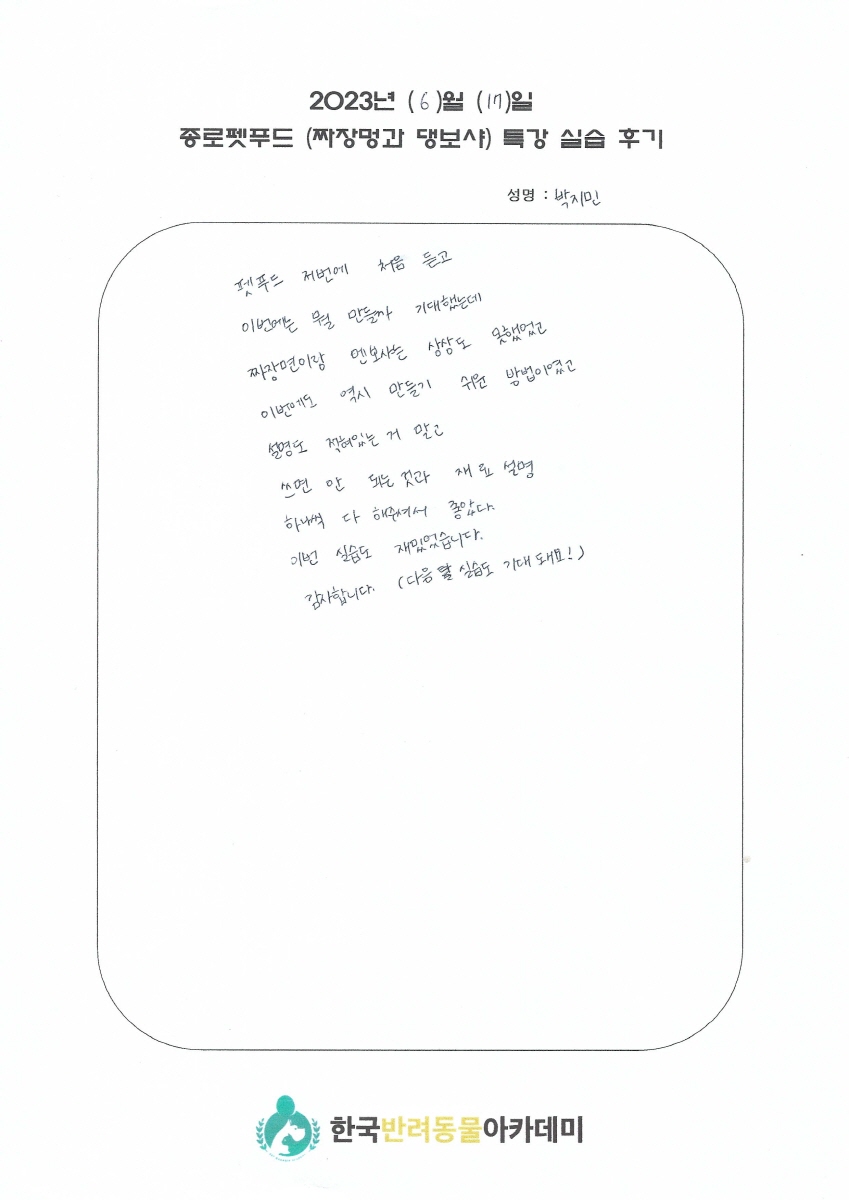 2023년 (6)월 (17)일
종로펫푸드 (짜장멍과 댕보샤) 특강 실습 후기
성명 : 박지민
펫푸드 저번에 처음 듣고
이번에는 뭘 만들까 기대했는데
짜장면이랑 멘보사는 상상도 못했었고
이번에도 역시 만들기 쉬운 방법이였고
설명도 적혀있는 거 말고
쓰면 안 되는 것과 재료 설명
하나씩 다 해주셔서 좋았다.
이번 실습도 재밌었습니다.
감사합니다. (다음 달 실습도 기대돼요!)
한국반려동물아카데미